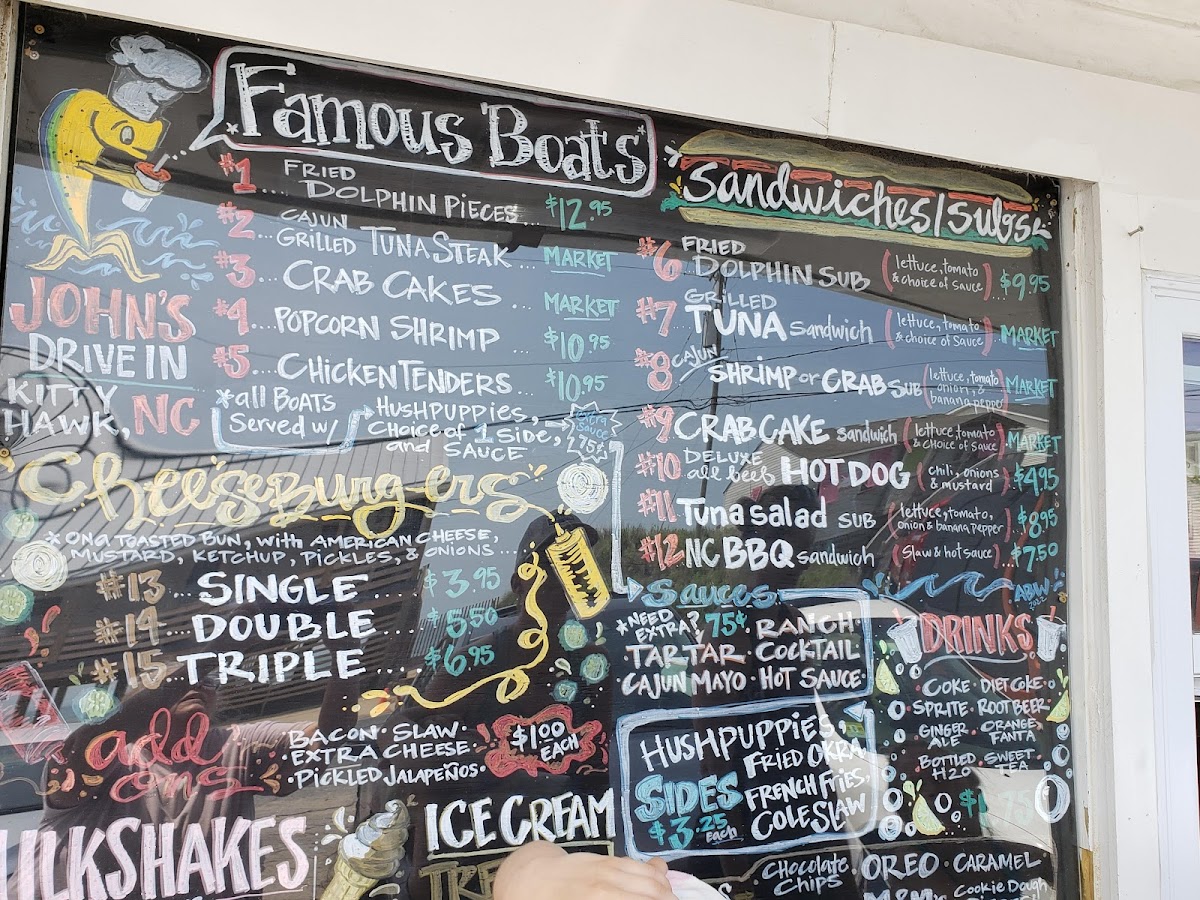 Famous Boats
#1 .... FRIED DOLPHIN PIECES ... $12.95
#2 ... CAJUN GRILLED TUNA STEAK ... MARKET
#3 ... CRAB CAKES ... MARKET
#4 ... POPCORN SHRIMP ... $10.95
#5 ... CHICKEN TENDERS ... $10.95
*all BOATS
Served w/
HUSHPUPPIES,
CHOICE of 1 SIDE,
and SAUCE
extra
sauce
75¢
JOHN'S
DRIVE IN
KITTY
HAWK, NC
Cheeseburgers
*ON a TOASTED BUN, with AMERICAN CHEESE,
MUSTARD, KETCHUP, PICKLES, & ONIONS...
#13 ... SINGLE ... $3.95
#14 ... DOUBLE ... $5.50
#15 ... TRIPLE .... $6.95
add
ons
BACON · SLAW ·
EXTRA CHEESE ·
· PICKLED JALAPEÑOS ·
$1.00
EACH
MILKSHAKES
ICE CREAM
Sandwiches/Subs
#6 FRIED DOLPHIN SUB (lettuce, tomato & choice of sauce) ... $9.95
#7 GRILLED TUNA sandwich (lettuce, tomato & choice of sauce) MARKET
#8 CAJUN SHRIMP or CRAB SUB (lettuce, tomato, onion, & banana pepper) MARKET
#9 CRAB CAKE sandwich (lettuce, tomato & choice of sauce) MARKET
#10 DELUXE all beef HOT DOG (chili, onions & mustard) $4.95
#11 Tuna salad SUB (lettuce, tomato, onion & banana pepper) $8.95
#12 NC BBQ sandwich (slaw & hot sauce) $7.50
ABW
2022
Sauces
*NEED EXTRA? 75¢ · RANCH ·
TARTAR · COCKTAIL
CAJUN MAYO · HOT SAUCE ·
SIDES
$3.25
each
HUSHPUPPIES,
FRIED OKRA,
FRENCH FRIES,
COLE SLAW
DRINKS
COKE · DIET COKE ·
SPRITE · ROOT BEER ·
GINGER ALE · ORANGE FANTA
BOTTLED H2O · SWEET TEA
CHOCOLATE CHIPS · OREO · CARAMEL
M&M's · Cookie Dough